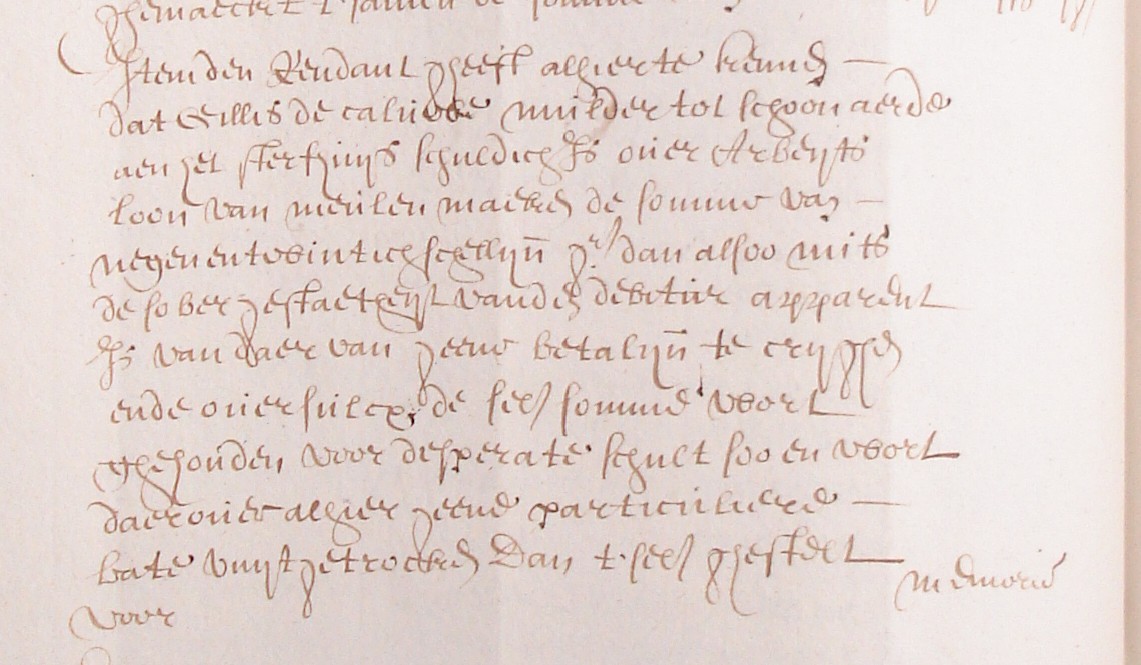 ghemaeckt t'samen de somme
Item den Rendant gheeft alhier te kennen
dat Gillis de caluwe muldер tot schoonaerde
aen het sterfhuijs schuldich Is ouer Arbeyts
loon van meulen maecken de somme van
negenentwintich schellijn gr. dan alsoo mits
de sobergestaetheyt vanden debiteur apparent
Is van daer van geene betalijn te crijghen
ende ouersulcx de selue somme wort
ghehouden voor desperate schult soo en wort
daerouer alhier geene particuliere
bate vuytgetrocken Dan t'selue ghestelt
voor memorie